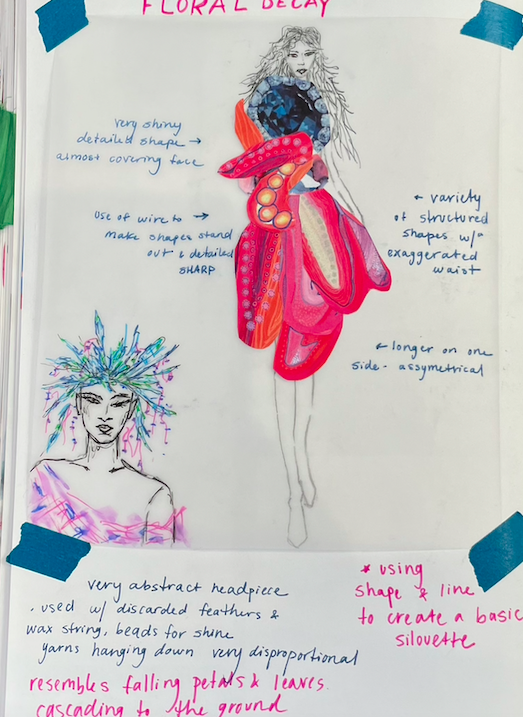 FLORAL DECAY
very shiny
detailed shape →
almost covering face
use of wire to →
make shapes stand
out & detailed
SHARP
← variety
of structured
shapes w/
exaggerated
waist
← longer on one
side - assymetrical
very abstract headpiece
. used w/ discarded feathers &
wax string, beads for shine
yarns hanging down very disproportional
resembles falling petals & leaves
cascading to the ground
* using
shape & line
to create a basic
silovette